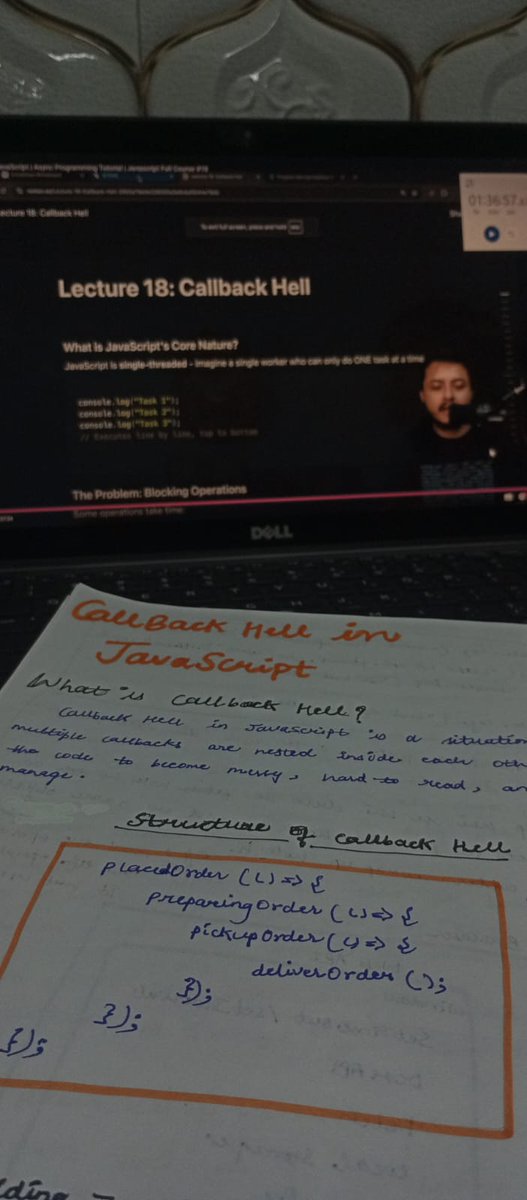 JavaScript Full Course #18
Lecture 18: Callback Hell
To exit full screen, press and hold esc
01:36:57
Lecture 18: Callback Hell
What is JavaScript's Core Nature?
JavaScript is single-threaded - imagine a single worker who can only do ONE task at a time
console.log("Task 1");
console.log("Task 2");
console.log("Task 3");
// Executes line by line, top to bottom
The Problem: Blocking Operations
Some operations take time:
DELL
CallBack Hell in
JavaScript
What is Callback Hell?
Callback Hell in JavaScript is a situation
multiple callbacks are nested inside each oth
the code to become messy, hard to read, an
manage.
Structure of Callback Hell
placedOrder (() => {
preparingOrder (() => {
pickupOrder (() => {
deliverOrder ();
});
});
});